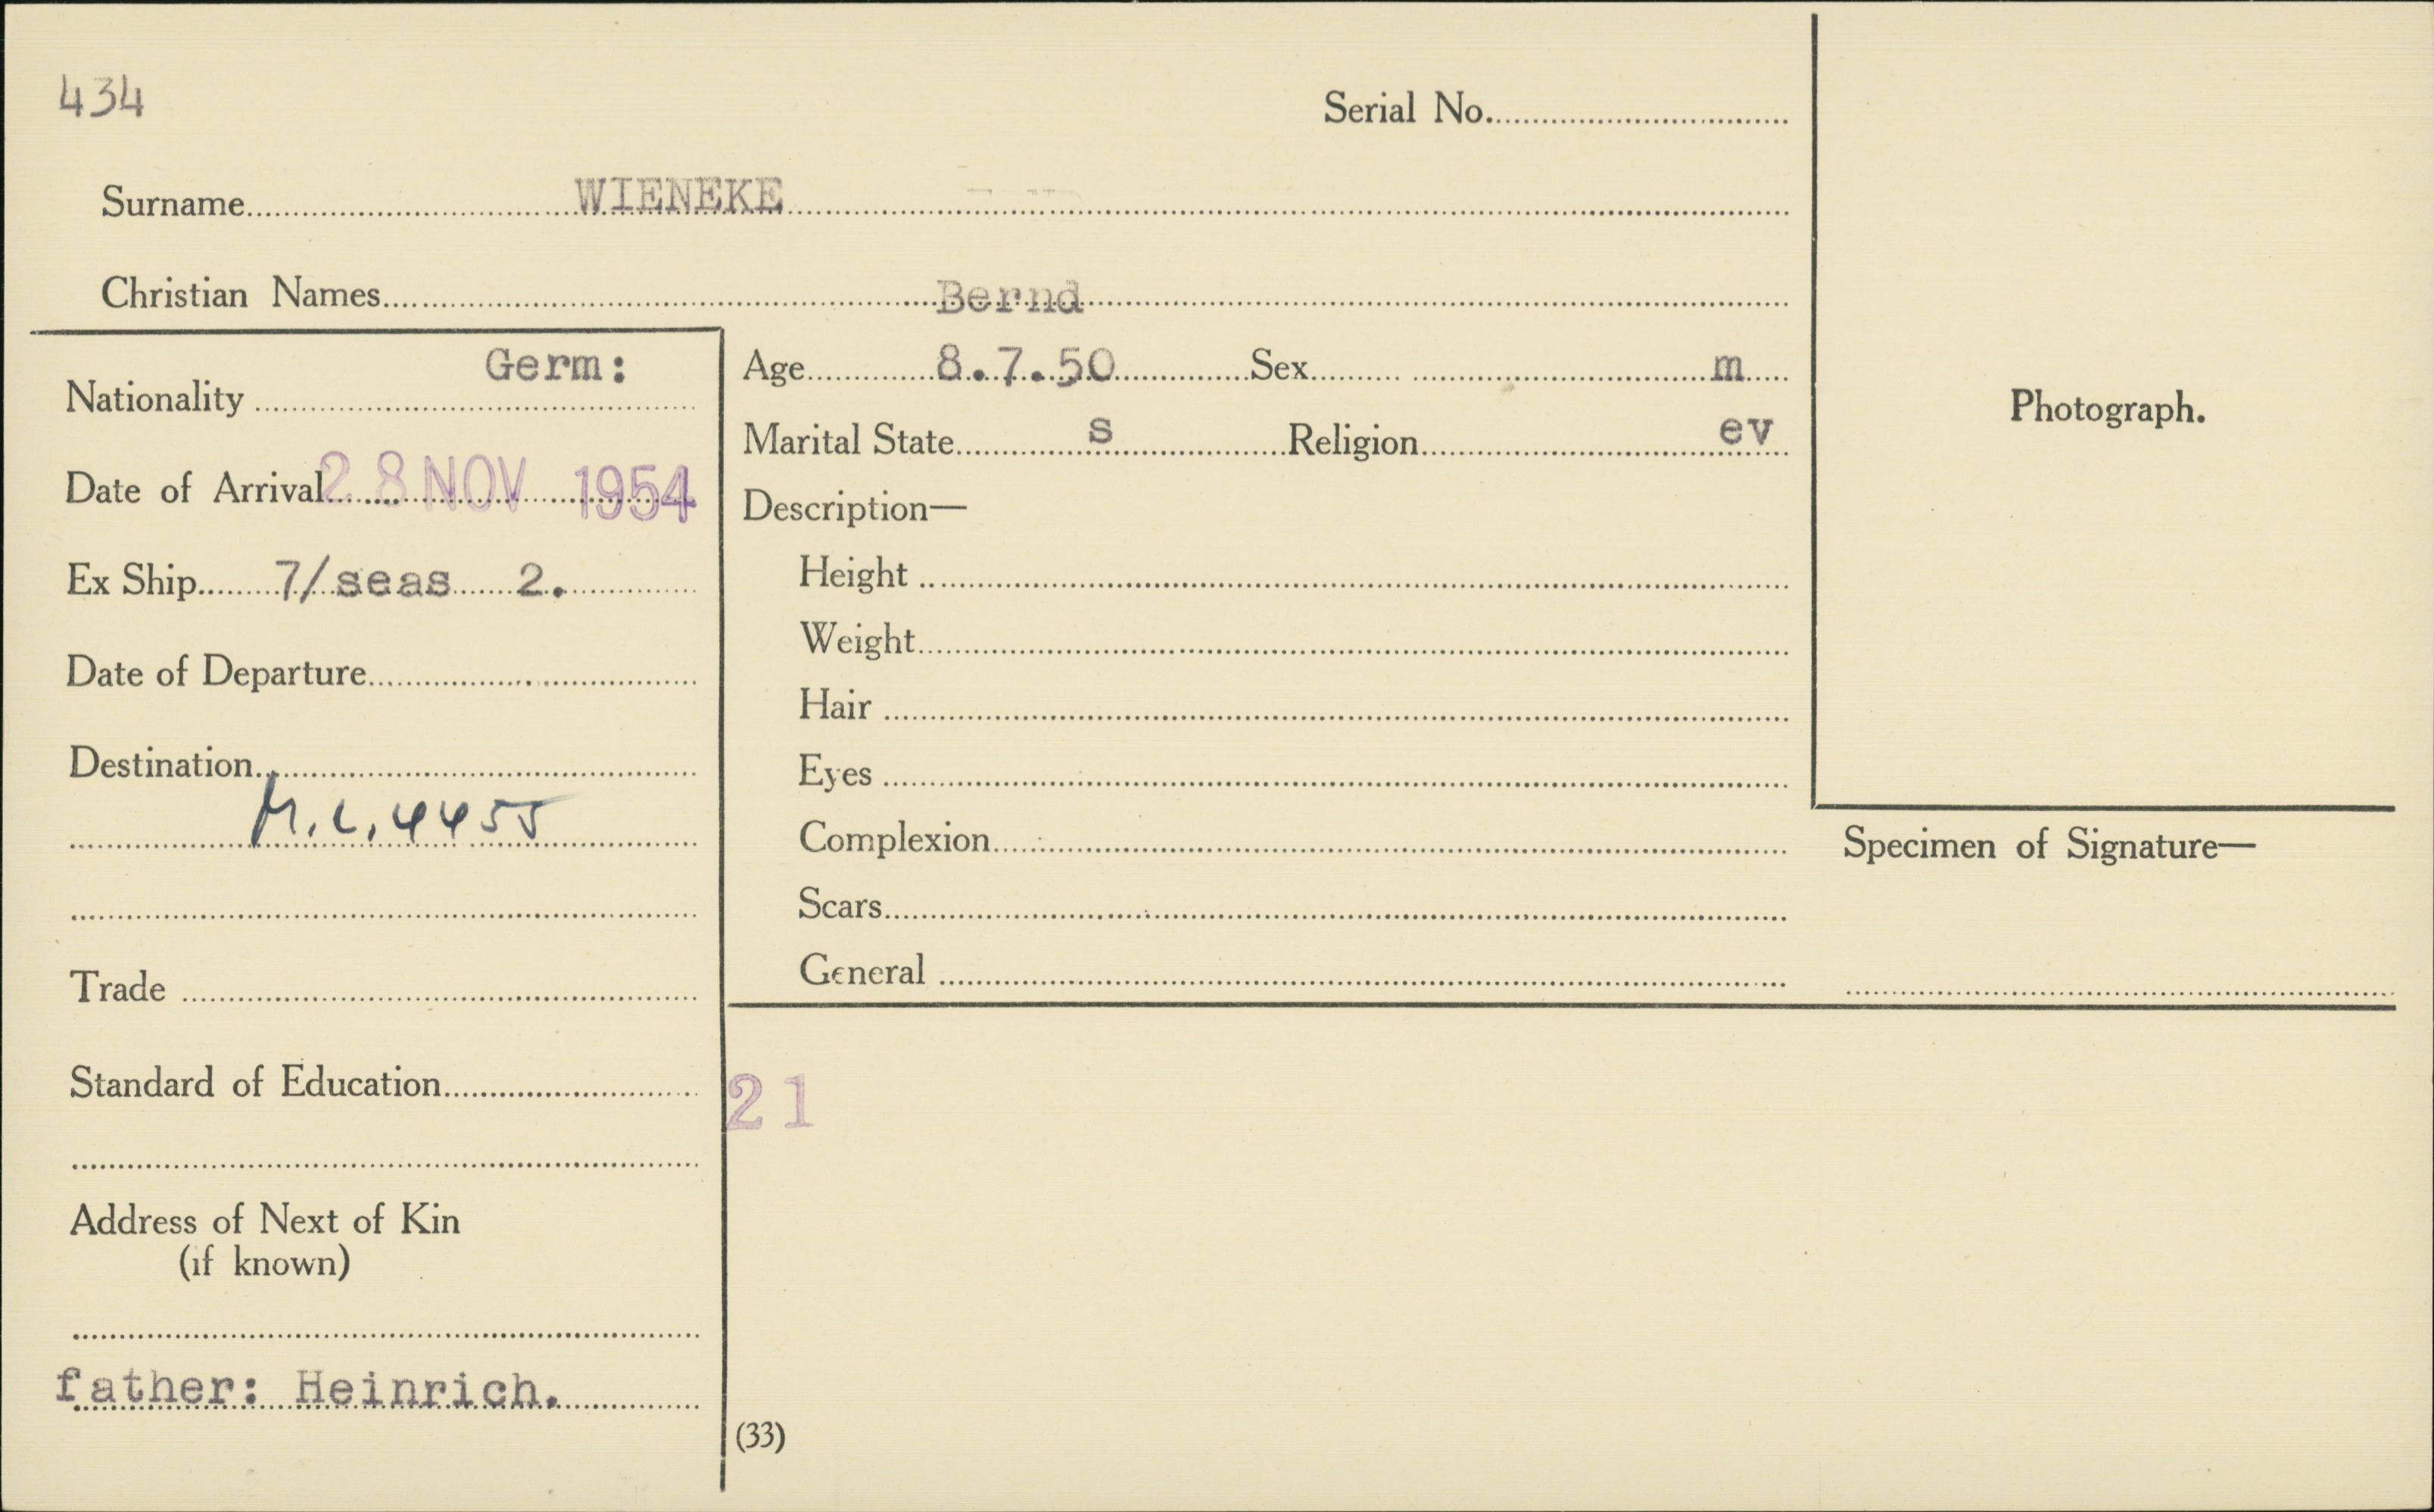 434
Serial No.
Surname WIENEKE
Christian Names Bernd
Nationality Germ:
Date of Arrival 28 NOV 1954
Ex Ship 7/seas 2.
Date of Departure
Destination
M.L.4455
Trade
Standard of Education
Address of Next of Kin
(if known)
father: Heinrich.
Age 8.7.50 Sex m
Marital State s Religion ev
Description—
Height
Weight
Hair
Eyes
Complexion
Scars
General
21
(33)
Photograph.
Specimen of Signature—